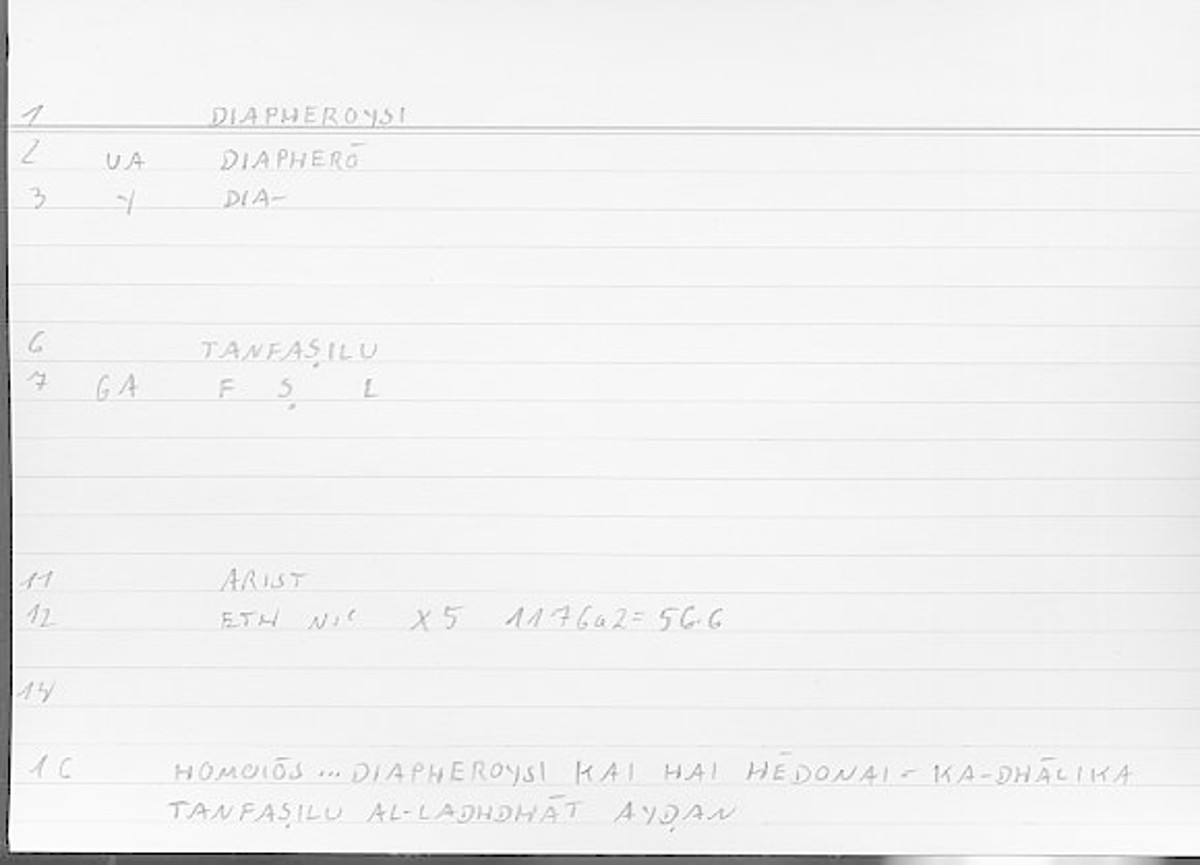 1 DIAPHEROYSI
2 UA DIAPHERŌ
3 Y DIA-
6 TANFAṢILU
7 GA F Ṣ L
11 ARIST
12 ETH NIC X 5 1176a2 = 56.6
14
1C HOMOIŌS ... DIAPHEROYSI KAI HAI HĒDONAI = KA-DHĀLIKA
TANFAṢILU AL-LADHDHĀT AYḌAN